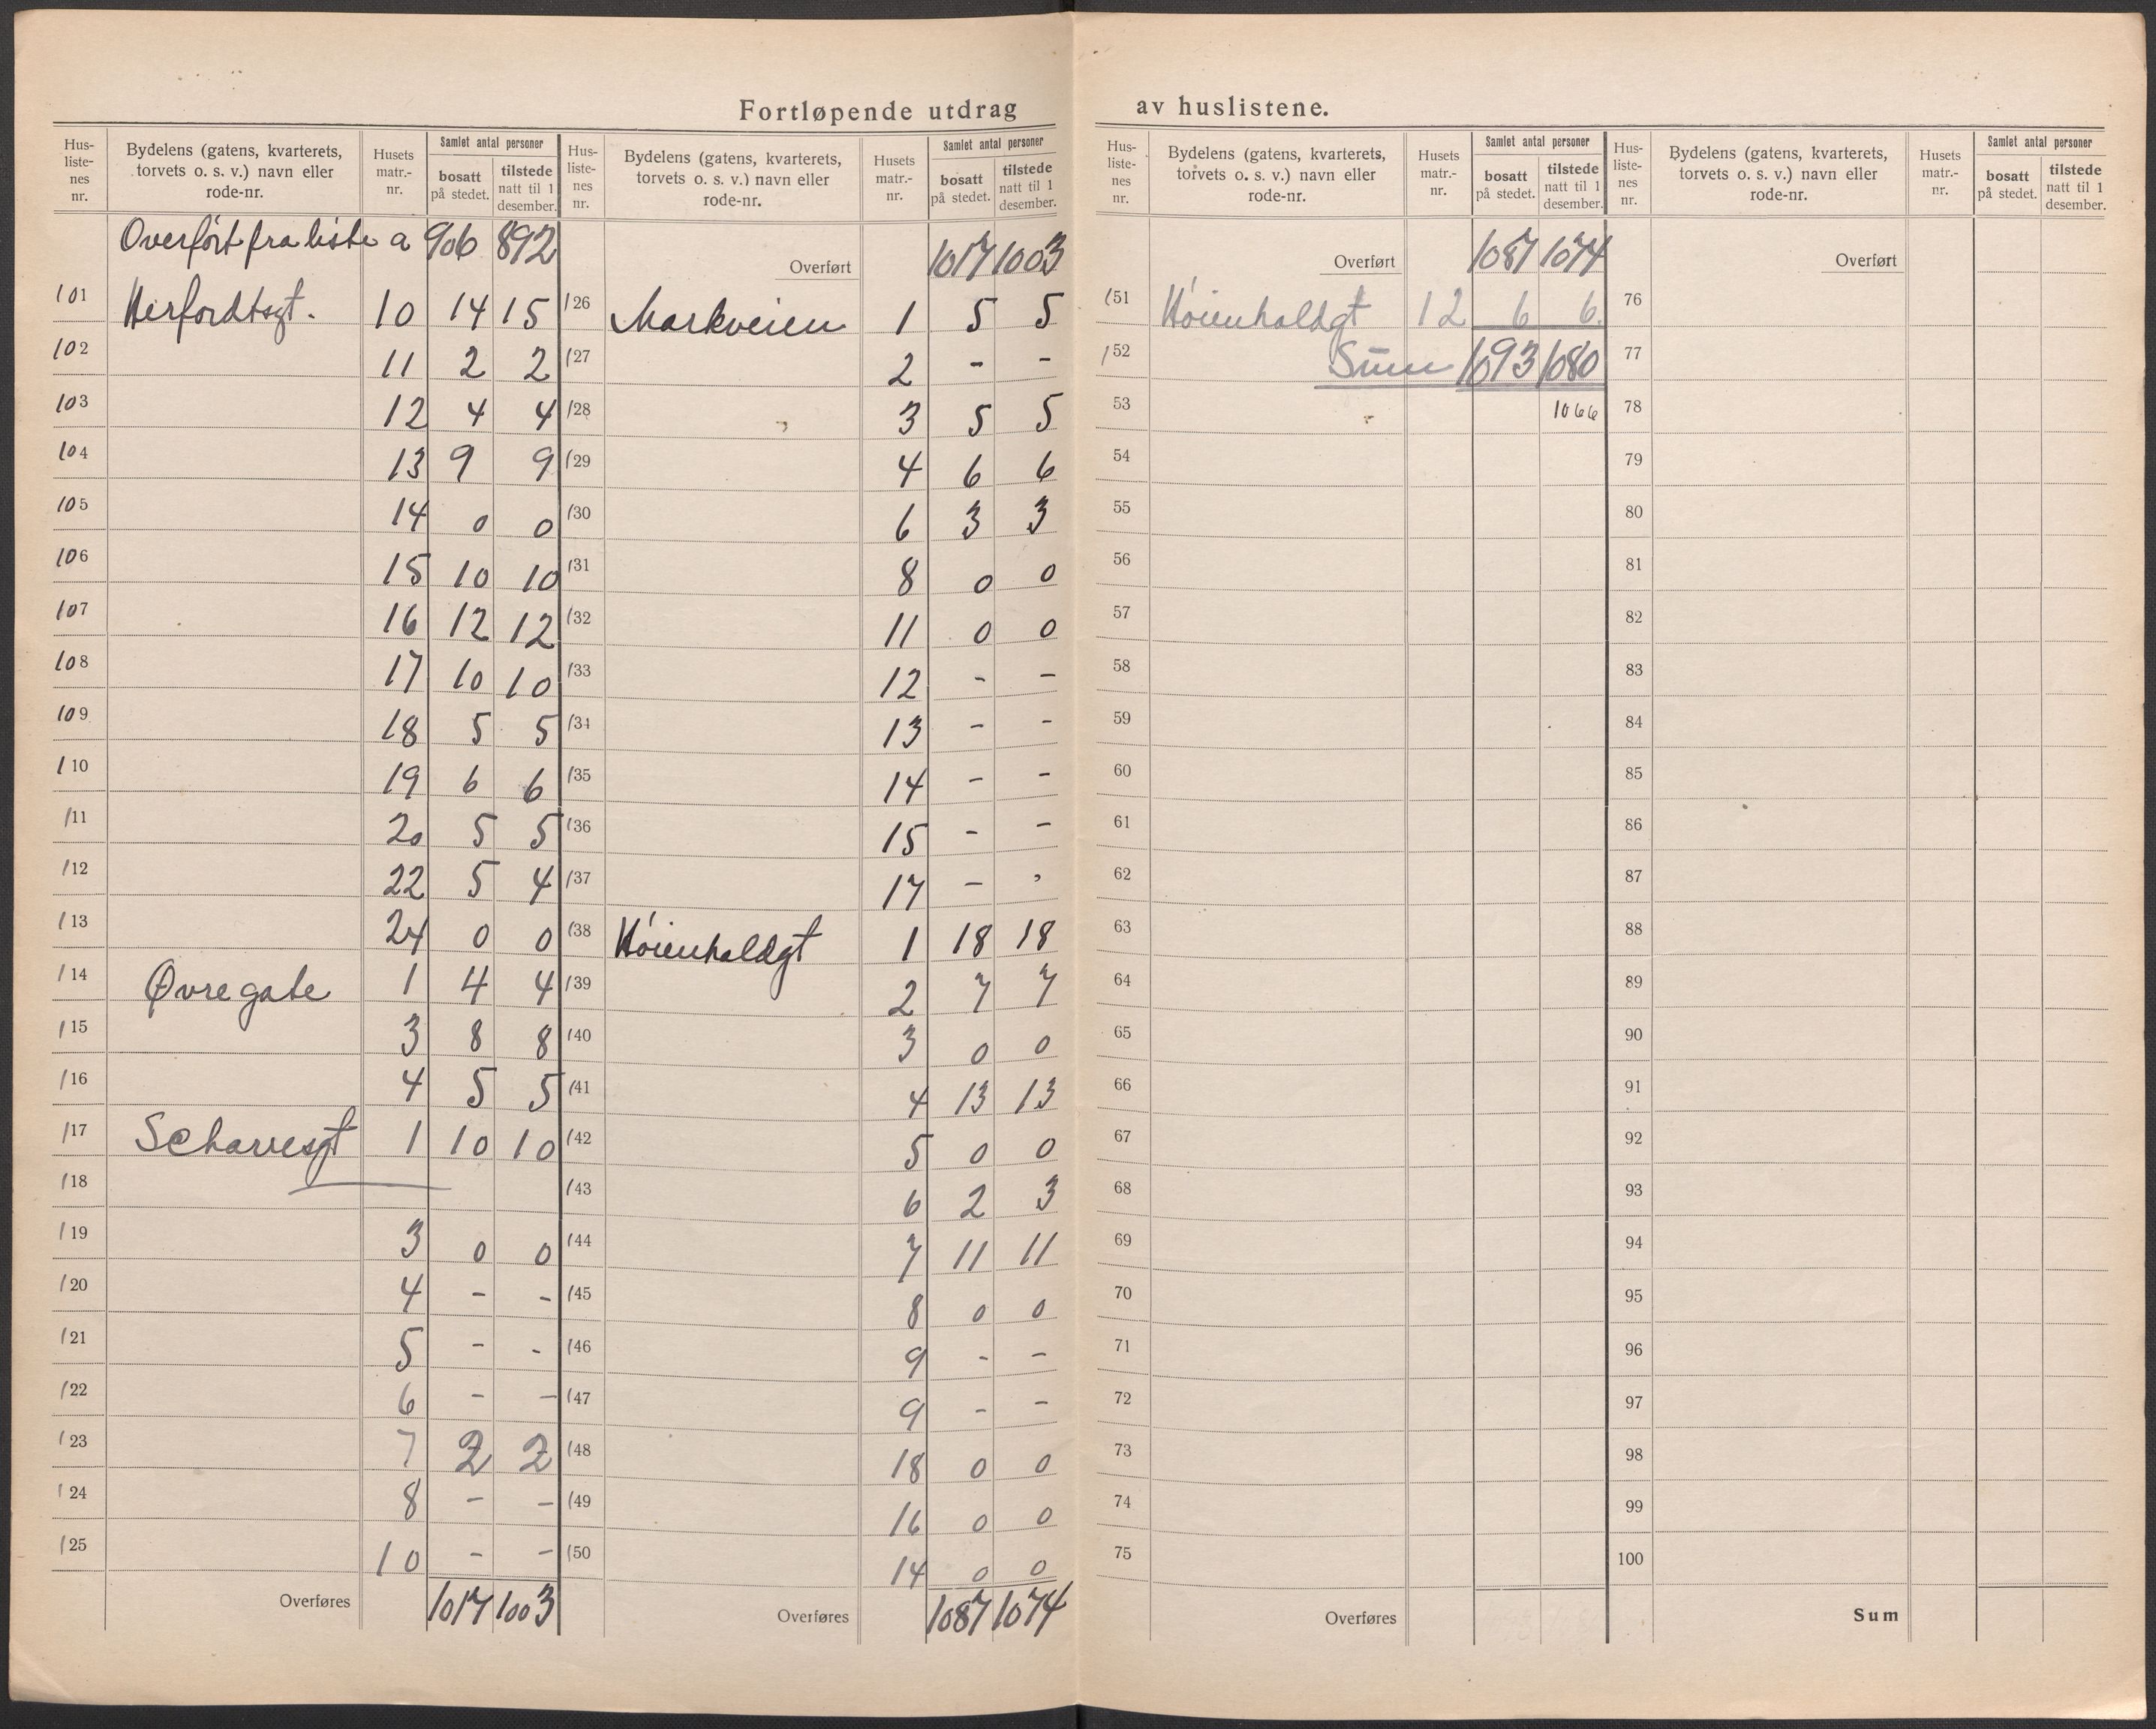 Fortløpende utdrag av huslistene.
Hus-liste-nes nr. | Bydelens (gatens, kvarterets, torvets o. s. v.) navn eller rode-nr. | Husets matr.-nr. | Samlet antal personer bosatt på stedet. | tilstede natt til 1 desember.
Overført fra liste a 906 892
101 Herfordtsgt. 10 14 15
102 11 2 2
103 12 4 4
104 13 9 9
105 14 0 0
106 15 10 10
107 16 12 12
108 17 10 10
109 18 5 5
110 19 6 6
111 20 5 5
112 22 5 4
113 24 0 0
114 Øvregate 1 4 4
115 3 8 8
116 4 5 5
117 Schavesgt 1 10 10
118
119 3 0 0
120 4 - -
121 5 - -
122 6 - -
123 7 2 2
124 8 - -
125 10 - -
Overføres 1017 1003
Hus-liste-nes nr. | Bydelens (gatens, kvarterets, torvets o. s. v.) navn eller rode-nr. | Husets matr.-nr. | Samlet antal personer bosatt på stedet. | tilstede natt til 1 desember.
Overført 1017 1003
126 Markveien 1 5 5
127 2 - -
128 3 5 5
129 4 6 6
130 6 3 3
131 8 0 0
132 11 0 0
133 12 - -
134 13 - -
135 14 - -
136 15 - -
137 17 - -
138 Høienhaldgt 1 18 18
139 2 7 7
140 3 0 0
141 4 13 13
142 5 0 0
143 6 2 3
144 7 11 11
145 8 0 0
146 9 - -
147 9 - -
148 18 0 0
149 16 0 0
150 14 0 0
Overføres 1087 1074
Hus-liste-nes nr. | Bydelens (gatens, kvarterets, torvets o. s. v.) navn eller rode-nr. | Husets matr.-nr. | Samlet antal personer bosatt på stedet. | tilstede natt til 1 desember.
Overført 1087 1074
151 Høienhaldgt 12 6 6.
152 Sum 1093 1080
53 1066
54
55
56
57
58
59
60
61
62
63
64
65
66
67
68
69
70
71
72
73
74
75
Overføres
Hus-liste-nes nr. | Bydelens (gatens, kvarterets, torvets o. s. v.) navn eller rode-nr. | Husets matr.-nr. | Samlet antal personer bosatt på stedet. | tilstede natt til 1 desember.
Overført
76
77
78
79
80
81
82
83
84
85
86
87
88
89
90
91
92
93
94
95
96
97
98
99
100
Sum